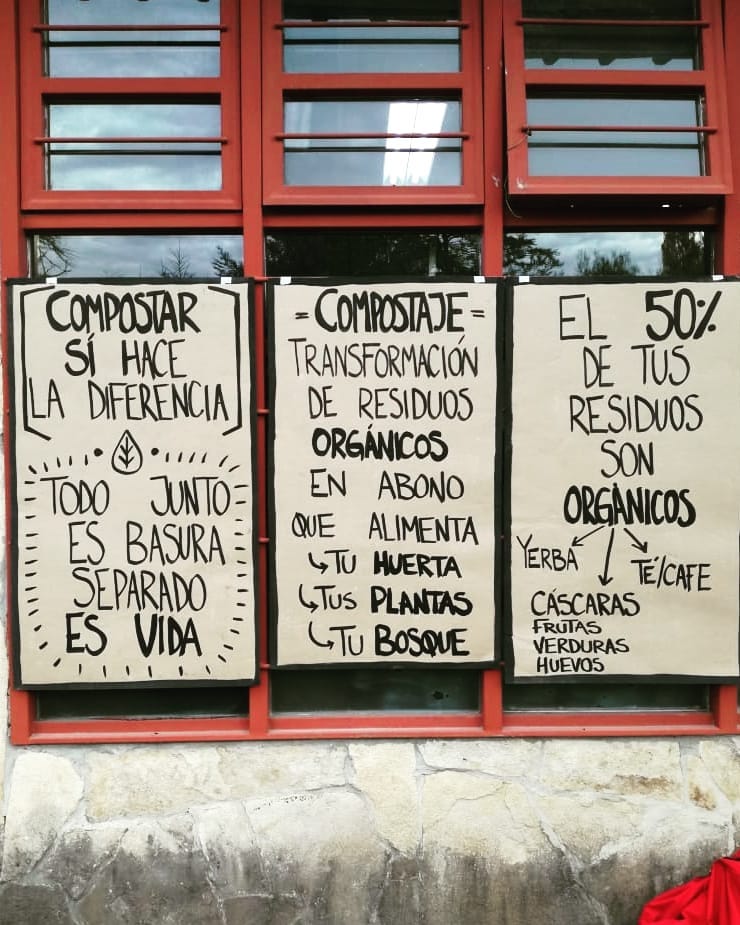 COMPOSTAR
SÍ HACE
LA DIFERENCIA
TODO JUNTO
ES BASURA
SEPARADO
ES VIDA
= COMPOSTAJE =
TRANSFORMACIÓN
DE RESIDUOS
ORGÁNICOS
EN ABONO
QUE ALIMENTA
↳TU HUERTA
↳TUS PLANTAS
↳TU BOSQUE
EL 50%
DE TUS
RESIDUOS
SON
ORGÀNICOS
YERBA
TÉ/CAFE
CÁSCARAS
FRUTAS
VERDURAS
HUEVOS